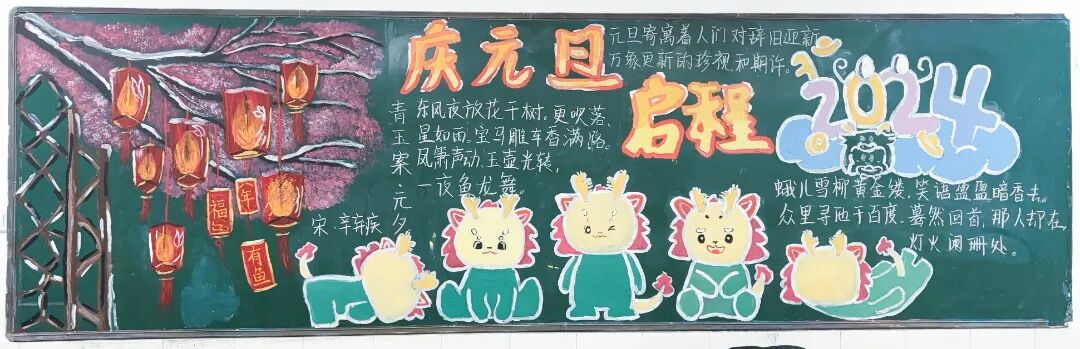 庆元旦
启程
元旦寄寓着人们对辞旧亚新
万象更新的珍视和期许。
2024
青玉案元夕
东风夜放花千树。更吹落、
星如雨。宝马雕车香满路。
凤箫声动,玉壶光转,
一夜鱼龙舞。
宋·辛弃疾
福
年
有鱼
蛾儿雪柳黄金缕,笑语盈盈暗香去。
众里寻他千百度。蓦然回首,那人却在
灯火阑珊处。